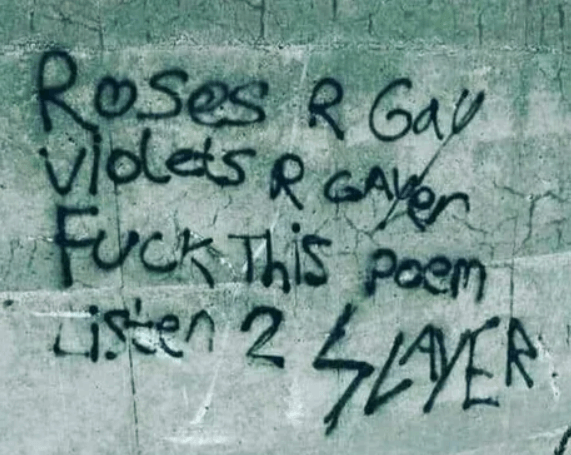 Roses R Gay
Violets R GAYer
Fuck This poem
Listen 2 SLAYER